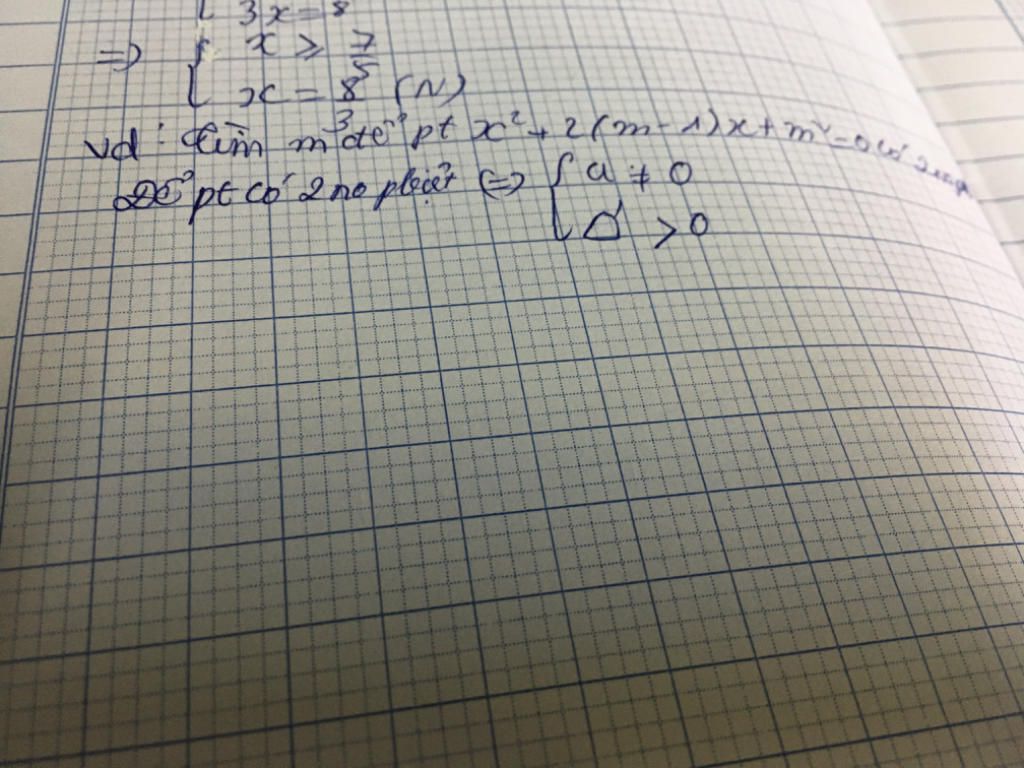 3x = 8
=> { x ≥ 7/5
x = 8/3 (N)
vd : tìm m để pt x² + 2(m-1)x + m² = 0 có 2 no pb
Để pt có 2 no pbiệt <=> { a ≠ 0
Δ' > 0